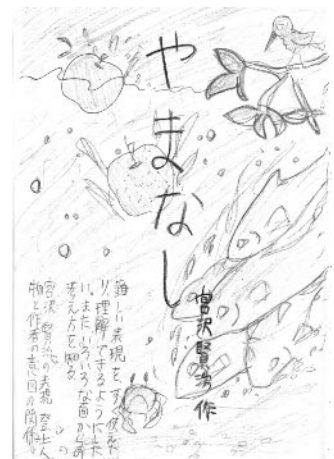 やまなし
宮沢賢治 作
難しい表現を、す
り、理解できるようにした
い。また、いろいろな面から
考え方を知る。
宮沢賢治の表現、登場人
物と作者の意図の関係。